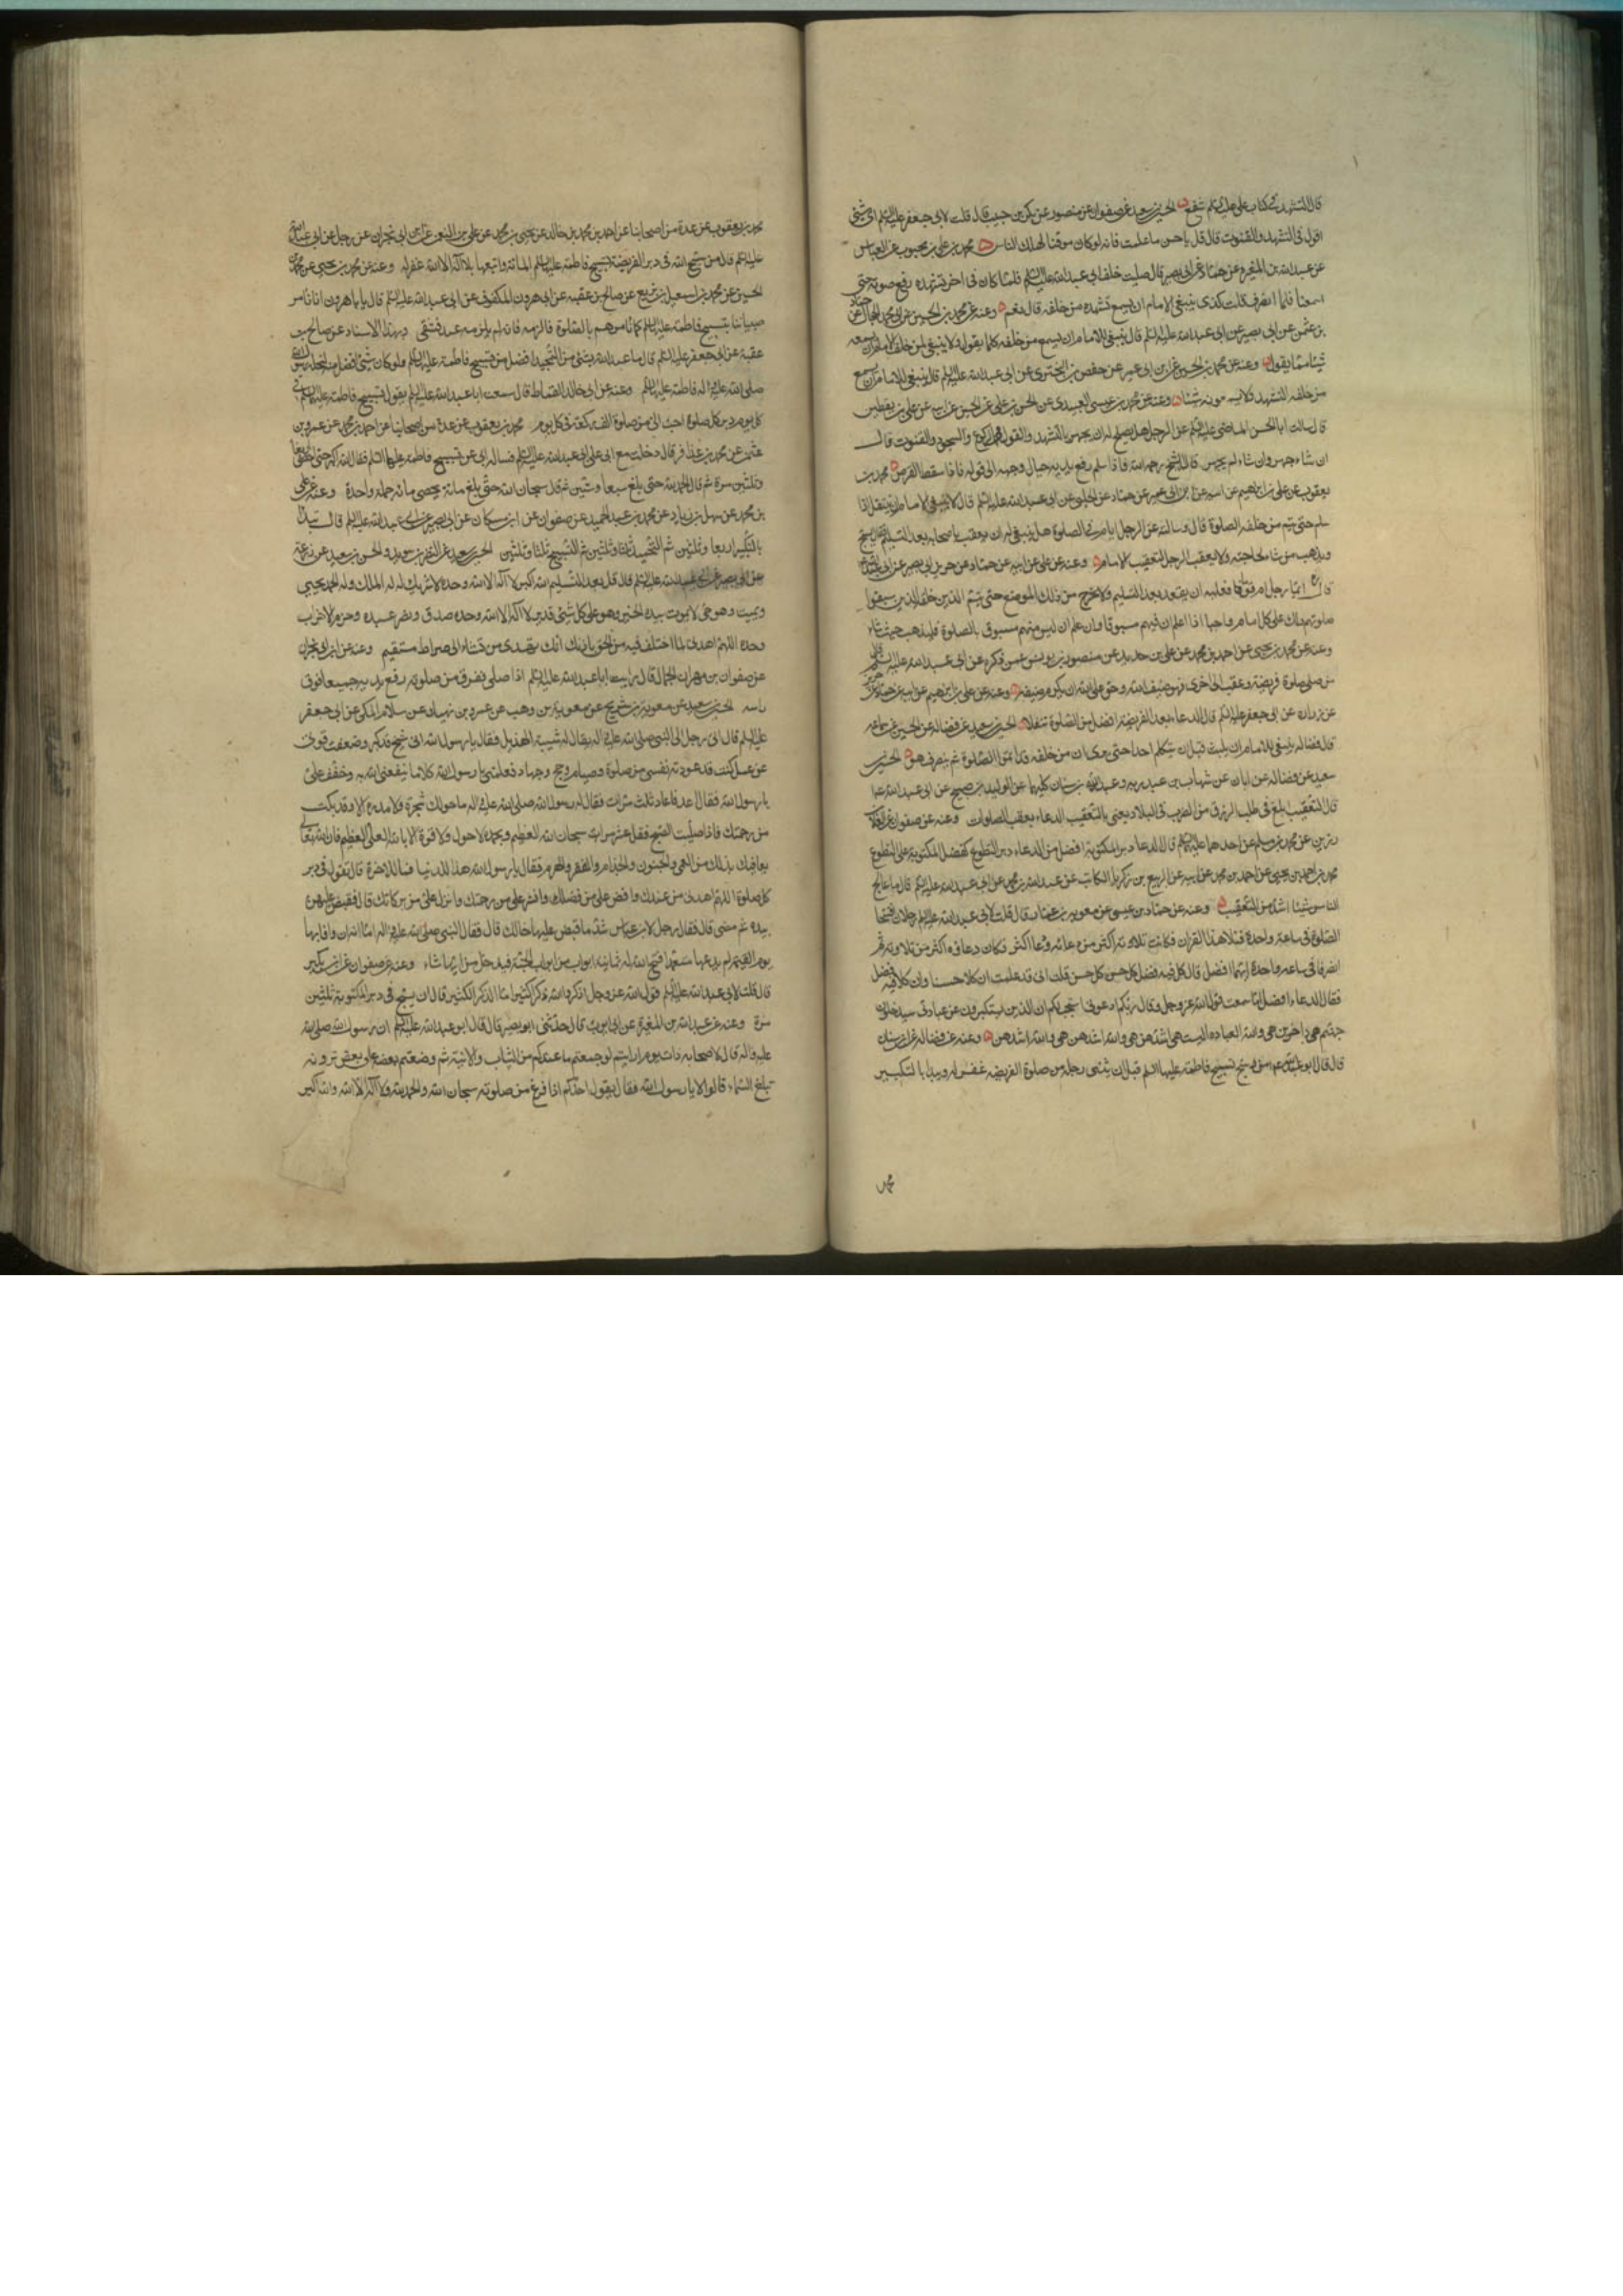 قال التشهد في كتاب علي عليه السلم شفع الحسين بن سعيد عن صفوان عن منصور عن بكر بن حبيب قال قلت لابي جعفر عليه السلم اي شئ
اقول في التشهد والقنوت قال قل باحسن ما علمت فانه لو كان موقتا لهلك الناس محمد بن علي بن محبوب عن العباس
عن عبد الله بن المغيره عن حماد عن ابي بصير قال صليت خلف ابي عبد الله عليه السلم فلما كان في اخر تشهده رفع صوته حتى
اسمعنا فلما انصرف قلت كذي ينبغي للامام ان يسمع تشهده من خلفه قال نعم وعنه عن محمد بن الحسين عن ابي محمد الحجال عن حماد
بن عثمن عن ابي بصير عن ابي عبد الله عليه السلم قال ينبغي للامام ان يسمع من خلفه كلما يقول ولا ينبغي لمن خلف الامام ان يسمعه
شيئا مما يقول وعنه عن محمد بن الحسين عن ابن ابي عمير عن حفص بن البختري عن ابي عبد الله عليه السلم قال ينبغي للامام ان يسمع
من خلفه التشهد ولا يسمعونه شيئا وعنه عن محمد بن عيسى العبيدي عن الحسن بن علي عن الحسين عن ابيه عن علي بن يقطين
قال سالت ابا الحسن الماضي عليه السلم عن الرجل هل يصلح له ان يجهر بالتشهد والقول في الركوع والسجود والقنوت قال
ان شاء جهر وان شاء لم يجهر قال الشيخ رحمه الله فاذا سلم رفع يديه حيال وجهه الى قوله فاذا سقط القرص محمد بن
يعقوب عن علي بن ابراهيم عن ابيه عن ابن ابي عمير عن حماد عن الحلبي عن ابي عبد الله عليه السلم قال لا ينبغي للامام ان ينتقل اذا
سلم حتى يتم من خلفه الصلوة قال وسالته عن الرجل يام في الصلوة هل ينبغي له ان يعقب باصحابه بعد التسليم فقال يسبح
ويذهب من شاء لحاجته ولا يعقب الرجل لتعقيب الامام وعنه عن علي عن ابيه عن حماد عن حريز عن ابي بصير عن ابي عبد الله
قال ايما رجل ام قوما فعليه ان يقعد بعد التسليم ولا يخرج من ذلك الموضع حتى يتم الذين خلفه الذين سبقوا
صلوتهم ذلك على كل امام واجب اذا علم ان فيهم مسبوقا وان علم ان ليس فيهم مسبوق بالصلوة فليذهب حيث شاء
وعنه عن محمد بن يحيى عن احمد بن محمد عن علي بن حديد عن منصور بن يونس عمن ذكره عن ابي عبد الله عليه السلم قال
من صلى صلوة فريضة وعقب الى اخرى فهو ضيف الله وحق على الله ان يكرم ضيفه وعنه عن علي بن ابراهيم عن ابيه عن حماد عن حريز
عن زراره عن ابي جعفر عليه السلم قال الدعاء بعد الفريضة افضل من الصلوة تنفلا الحسين بن سعيد عن فضاله عن الحسين عن سماعه
قال ينبغي للامام ان يلبث قبل ان يتكلم احدا حتى يرى ان من خلفه قد اتموا الصلوة ثم ينصرف هو الحسين بن
سعيد عن فضاله عن ابان عن شهاب بن عبد ربه وعبد الله بن سنان كليهما عن الوليد بن صبيح عن ابي عبد الله ع
قال التعقيب ابلغ في طلب الرزق من الضرب في البلاد يعني بالتعقيب الدعاء بعقب الصلوات وعنه عن صفوان عن العلاء
رزين عن محمد بن مسلم عن احدهما عليه السلم قال الدعاء دبر المكتوبة افضل من الدعاء دبر التطوع كفضل المكتوبة على التطوع
محمد بن احمد بن يحيى عن احمد بن محمد عن ابيه عن الربيع بن زكريا الكاتب عن عبد الله بن محمد عن ابي عبد الله عليه السلم قال ما عالج
الناس شيئا اشد من التعقيب وعنه عن حماد بن عيسى عن معوية بن عمار قال قلت لابي عبد الله عليه السلم رجلان افتتحا
الصلوة في ساعة واحدة فتلا هذا القران فكانت تلاوته اكثر من دعائه ودعا اكثر فكان دعاؤه اكثر من تلاوته ثم
انصرفا في ساعه واحدة ايهما افضل قال كل فيه فضل كل حسن قلت اني قد علمت ان كلا حسنا وان كلا فيه فضل
فقال الدعاء افضل اما سمعت قول الله عز وجل وقال ربكم ادعوني استجب لكم ان الذين يستكبرون عن عبادتي سيدخلون
جهنم هي داخرين هي والله العباده اليست هي اشدهن هي والله اشدهن هي والله اشدهن وعنه عن فضاله عن ابن سنان
قال قال ابو عبد الله ع من سبح تسبيح فاطمة عليها السلم قبل ان يثني رجله من صلوة الفريضه غفر له ويبدا بالتكبير
محمد
محمد بن يعقوب عن عدة من اصحابنا عن احمد بن محمد بن خالد عن يحيى بن محمد عن علي بن النعمن عن ابن ابي نجران عن رجل عن ابي عبد الله
عليه السلم قال من سبح الله في دبر الفريضة تسبيح فاطمة عليها السلم المائة واتبعها بلا اله الا الله غفر له وعنه عن محمد بن يحيى عن محمد بن
الحسين عن محمد بن اسمعيل بن بزيع عن صالح بن عقبه عن ابي هرون المكفوف عن ابي عبد الله عليه السلم قال يا با هرون انا نامر
صبياننا بتسبيح فاطمه عليها السلم كما نامرهم بالصلوة فالزمه فانه لم يلزمه عبد فشقي وبهذا الاسناد عن صالح بن
عقبة عن ابي جعفر عليه السلم قال ما عبد الله بشئ من التحميد افضل من تسبيح فاطمة عليها السلم ولو كان شئ افضل منه لنحله رسول الله
صلى الله عليه واله فاطمة عليها السلم وعنه عن ابي خالد القماط قال سمعت ابا عبد الله عليه السلم يقول تسبيح فاطمة عليها السلم في
كل يوم دبر كل صلوة احب الي من صلوة الف ركعة في كل يوم محمد بن يعقوب عن عدة من اصحابنا عن احمد بن محمد عن عمرو بن
عثمن عن محمد بن عذافر قال دخلت مع ابي على ابي عبد الله عليه السلم فساله ابي عن تسبيح فاطمة عليها السلم فقال الله اكبر حتى احصى اربعا
وثلثين مرة ثم قال الحمد لله حتى بلغ سبعا وستين ثم قال سبحان الله حتى بلغ مائة يحصى مائة جملة واحدة وعنه عن علي
بن محمد عن سهل بن زياد عن محمد بن عبد الحميد عن صفوان عن ابن مسكان عن ابي بصير عن ابي عبد الله عليه السلم قال تبدا
بالتكبير اربعا وثلثين ثم التحميد ثلثا وثلثين ثم التسبيح ثلثا وثلثين الحسين بن سعيد عن النضر بن سويد والحسن بن سعيد عن زرعة
عن ابي بصير عن ابي عبد الله عليه السلم قال قل بعد التسليم الله اكبر لا اله الا الله وحده لا شريك له له الملك وله الحمد يحيي
ويميت وهو حي لا يموت بيده الخير وهو على كل شئ قدير لا اله الا الله وحده صدق ونصر عبده وهزم الاحزاب
وحده اللهم اهدني لما اختلف فيه من الحق باذنك انك تهدي من تشاء الى صراط مستقيم وعنه عن ابن ابي نجران
عن صفوان بن مهران الجمال قال رايت ابا عبد الله عليه السلم اذا صلى نفرق من صلوته رفع يديه جميعا فوق
راسه الحسين بن سعيد عن معوية بن شريح عن معوية بن وهب عن عمرو بن نهيك عن سلام المكي عن ابي جعفر
عليه السلم قال اتى رجل الى النبي صلى الله عليه واله يقال له شيبة الهذيل فقال يا رسول الله اني شيخ قد كبر وضعفت قوتي
عن عمل كنت قد عودته نفسي من صلوة وصيام وحج وجهاد فعلمني يا رسول الله كلاما ينفعني الله به وخفف علي
يا رسول الله فقال اعد فاعاد ثلث مرات فقال له رسول الله صلى الله عليه واله ما حولك شجرة ولا مدرة الا وقد بكت
من رحمتك فاذا صليت الصبح فقل عشر مرات سبحان الله العظيم وبحمده لا حول ولا قوة الا بالله العلي العظيم فان الله تعالى
يعافيك بذلك من العمى والجنون والجذام والفقر والهرم فقال يا رسول الله هذا للدنيا فما للاخرة قال تقول في دبر
كل صلوة اللهم اهدني من عندك وافض علي من فضلك وانشر علي من رحمتك وانزل علي من بركاتك قال فقبض عليهن
بيده ثم مضى قال فقال رجل لابن عباس شد ما قبض عليها خالك قال فقال النبي صلى الله عليه واله اما انه ان وافا بها
يوم القيمة لم يدعها متعمدا فتح الله له ثمانية ابواب من ابواب الجنة فيدخل من ايها شاء وعنه عن صفوان عن ابن بكير
قال قلت لابي عبد الله عليه السلم قول الله عز وجل اذكروا الله ذكرا كثيرا ما الذكر الكثير قال ان يسبح في دبر المكتوبة ثلثين
مرة وعنه عن عبد الله بن المغيرة عن ابي ايوب قال حدثني ابو بصير قال قال ابو عبد الله عليه السلم ان رسول الله صلى الله
عليه واله قال لاصحابه ذات يوم ارايتم لو جمعتم ما عندكم من الثياب والانية ثم وضعتم بعضه على بعض ترونه
تبلغ السماء قالوا لا يا رسول الله فقال يقول احدكم اذا فرغ من صلوته سبحان الله والحمد لله ولا اله الا الله والله اكبر